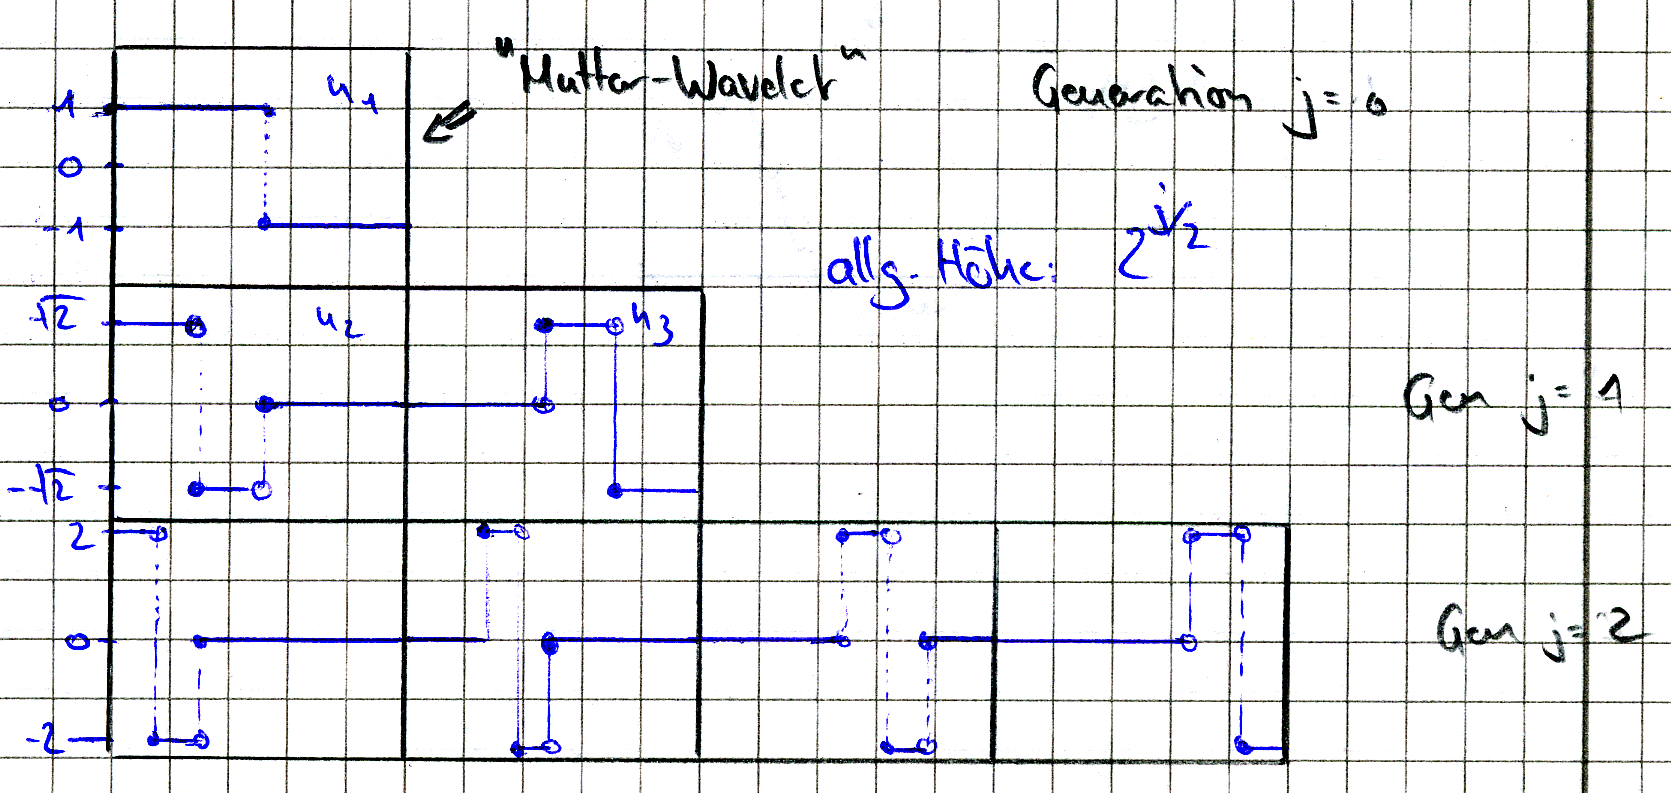 "Mutter-Wavelet" Generation j=0
1 u₁
0
-1
allg. Höhe: 2^{j/2}
√2 u₂ u₃
0 Gen j=1
-√2
2
0 Gen j=2
-2